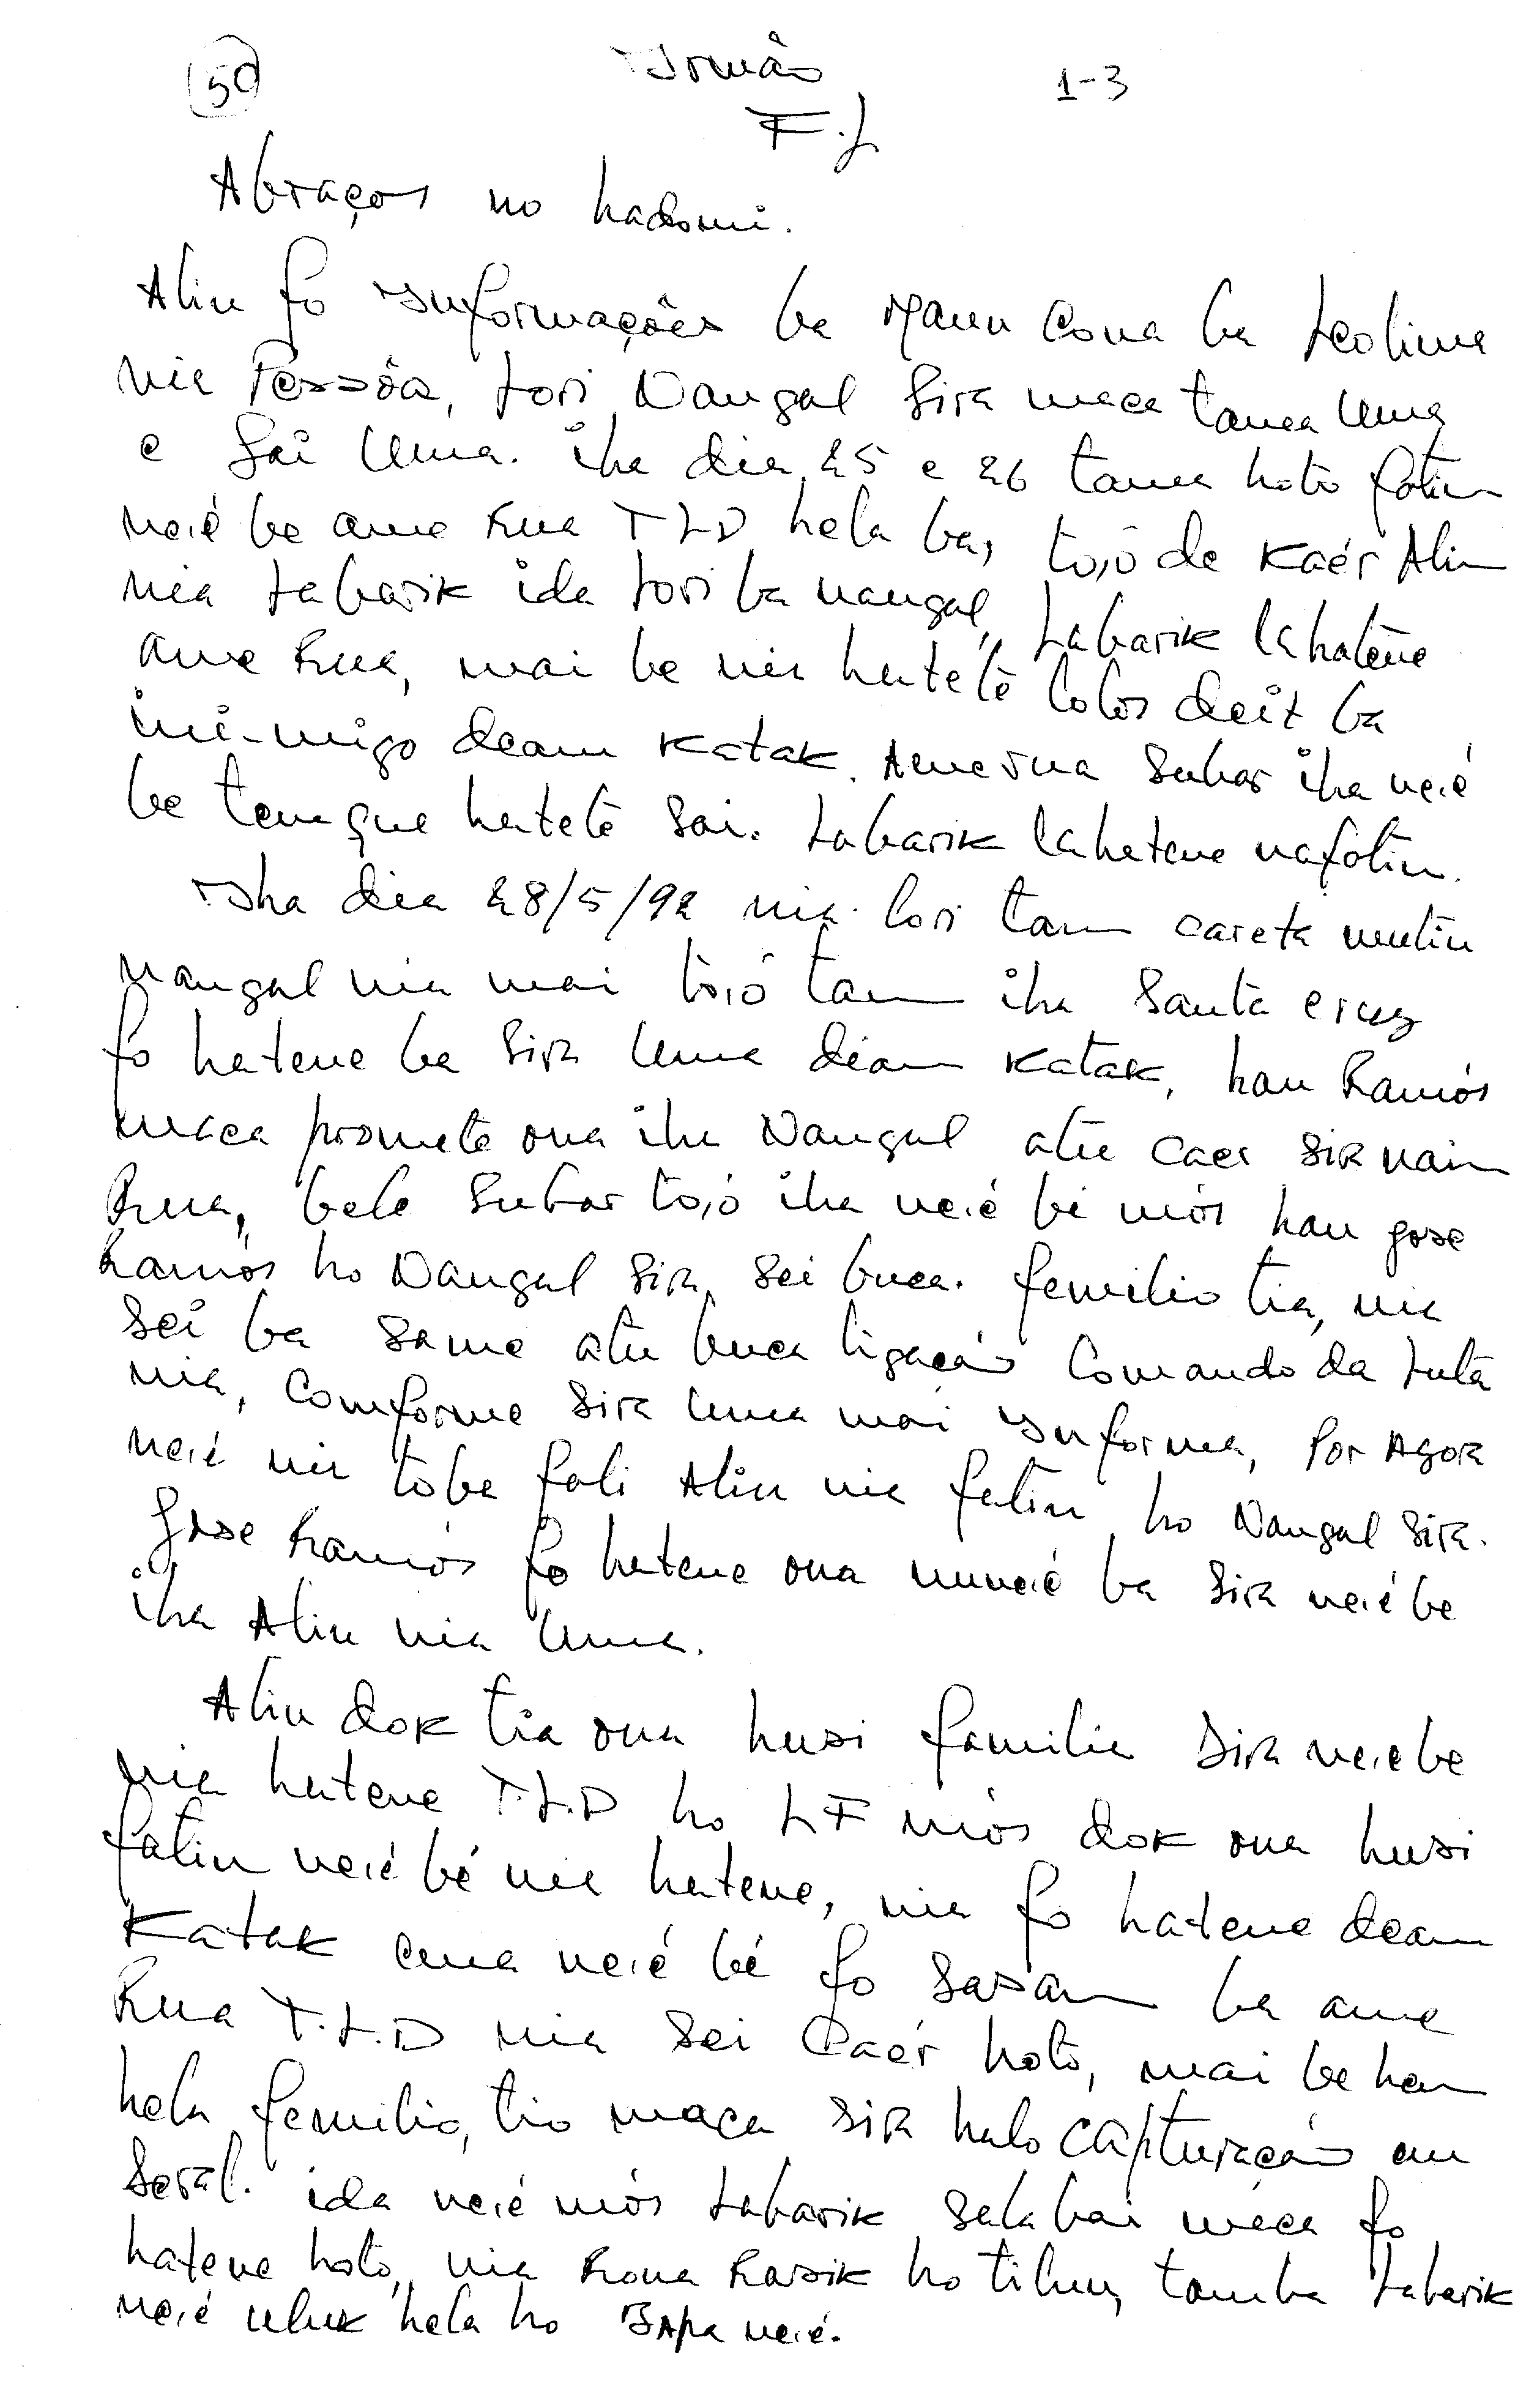 50 Irmão 1-3
F.L
Abraços no hadomi.
Alin fó Informações ba Maun Cona ba Leolima
nia Pessôa, Lori Nangal Sira maca tama Uma
e Sai Uma. iha dia 25 e 26 tama hoto fatin
ne,é be ame Rua TLD hela ba, to,o de Kaér Alin
nia Labarik ida Lori ba nangal, Labarik lahatene
ame Rua, mai be nia hatetê lolos deit ba
ini-migo deam Katak. Ame rua Subar iha ne,é
be tem que hatetê Sai. Labarik lahatene nafatin.
Iha dia 28/5/92 nia lori tam careta mutin
nangal nia mai to,o tam iha Santa cruz
fó hatene ba Sira Uma deam Katak, hau Ramós
maca promete ona iha Nangal atu caer Sira nain
Rua, bele Subar to,o iha ne,é bé mós hau gose
Ramós ho Nangal Sira Sei buca. femilio tia, nia
Sei ba Same atu buca ligação Comando da Luta
nia, Comforme Sira Uma mai Informa, Por Agora
ne,é nia toba fali Alin nia fatin ho Nangal Sira.
Jose Ramós fó hatene ona nune,é ba Sira ne,é be
iha Alin nia Uma.
Alin dok tia ona husi familia Sira ne,e be
nia hatene T.L.D ho LF mós dok ona husi
fatin ne,é bé nia hatene, nia fó hatene deam
Katak ema ne,é bé fó Sasam ba ame
Rua T.L.D nia Sei Caér hoto, mai be hau
hela femilio, tio maca Sira halo capturação em
Seral. ida ne,é mós Labarik Sala bai maca fo
hatene hoto, nia Rona Rasik ho tilun, tamba Labarik
ne,é uluk hela ho Bapa ne,é.